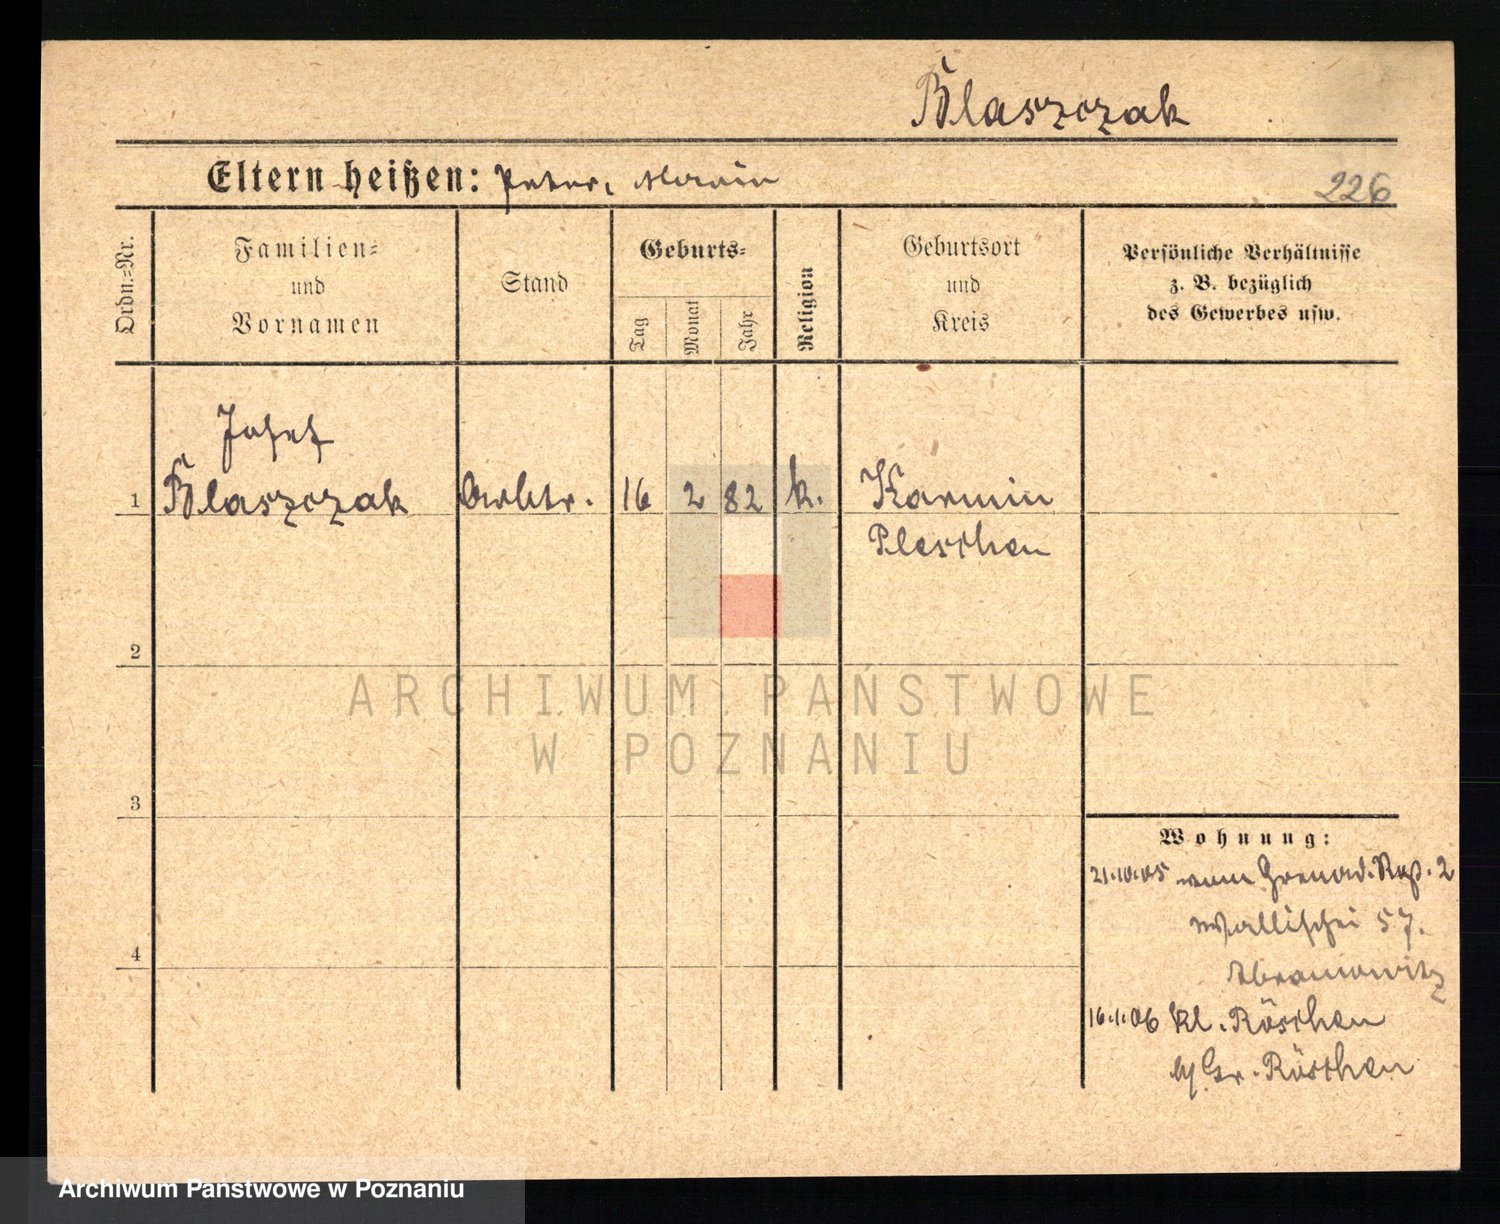 Blaszczak
Eltern heißen: Peter, Maria
226
Ordn.=Nr.
Familien=
und
Vornamen
Stand
Geburts=
Tag
Monat
Jahr
Religion
Geburtsort
und
Kreis
Persönliche Verhältnisse
z. B. bezüglich
des Gewerbes usw.
Josef
1 Blaszczak Arbtr. 16 2 82 k. Karmin
Pleschen
2
ARCHIWUM PAŃSTWOWE
W POZNANIU
3
Wohnung:
21.10.05 vom Grenad. Rgt. 2
Wallischei 57.
Abramowitz
4
16.1.06 Kl. Röschen
b/ Gr. Röschen
Archiwum Państwowe w Poznaniu